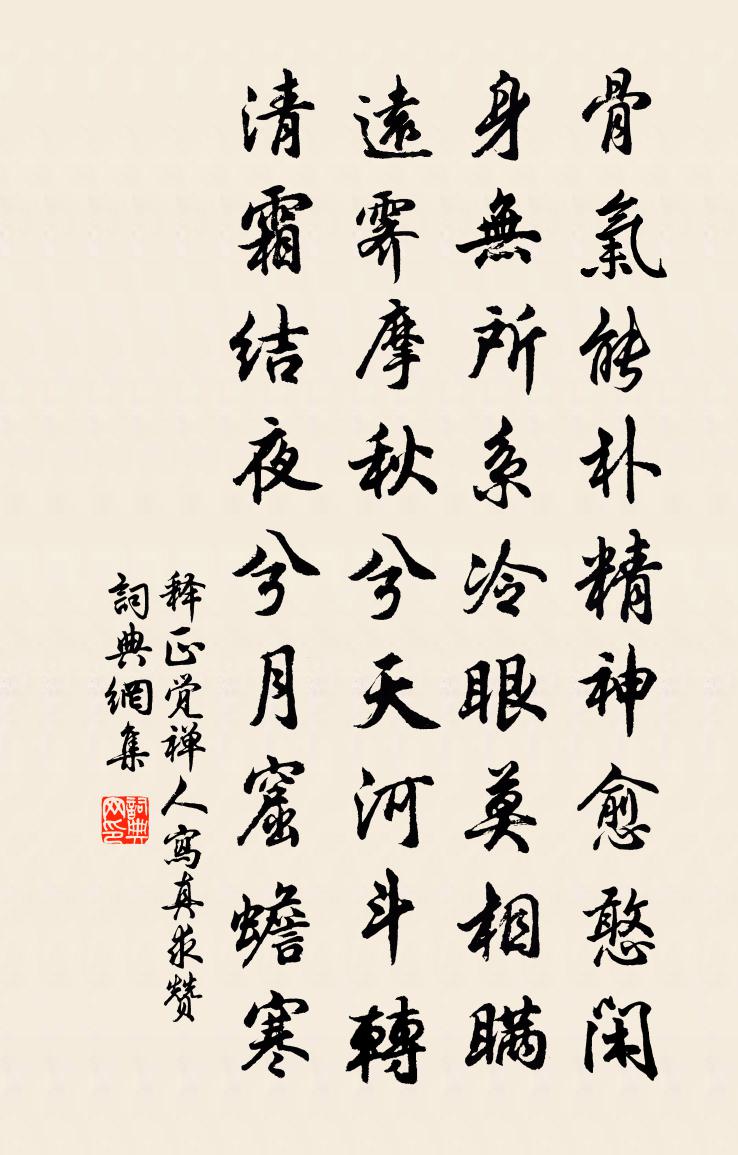 骨氣能朴精神愈憨闲
身無所系冷眼莫相瞞
遠霁摩秋兮天河斗轉
清霜结夜兮月窟蟾寒
释正觉禅人寫真求赞
詞典網集
詞典网印